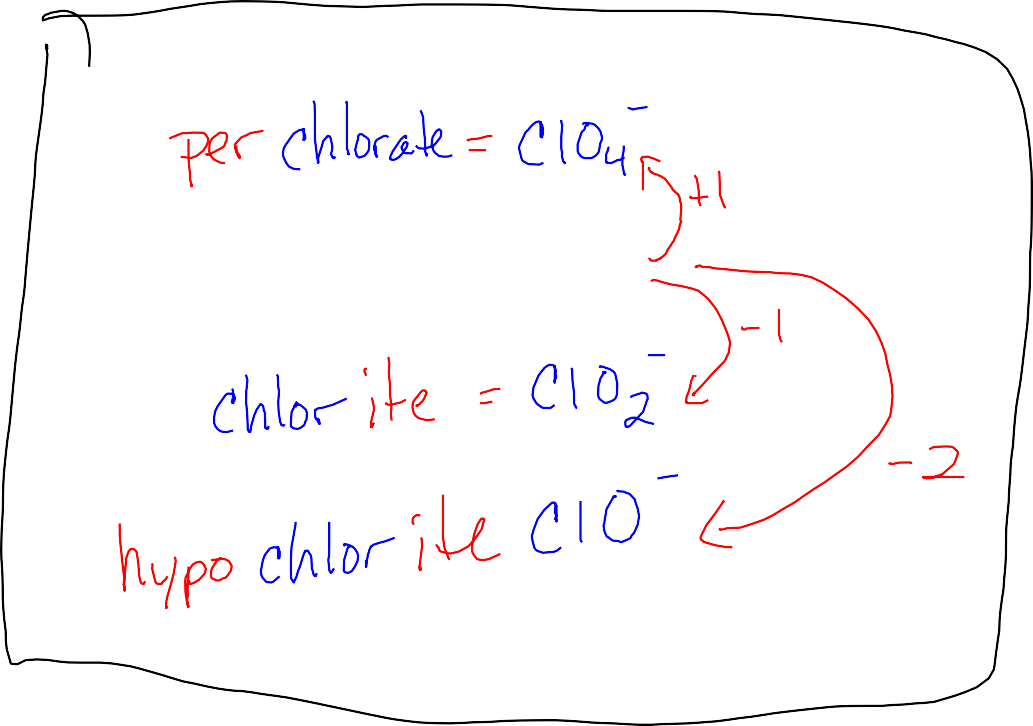 per chlorate = ClO₄⁻
+1
-1
chlorite = ClO₂⁻
-2
hypo chlorite ClO⁻